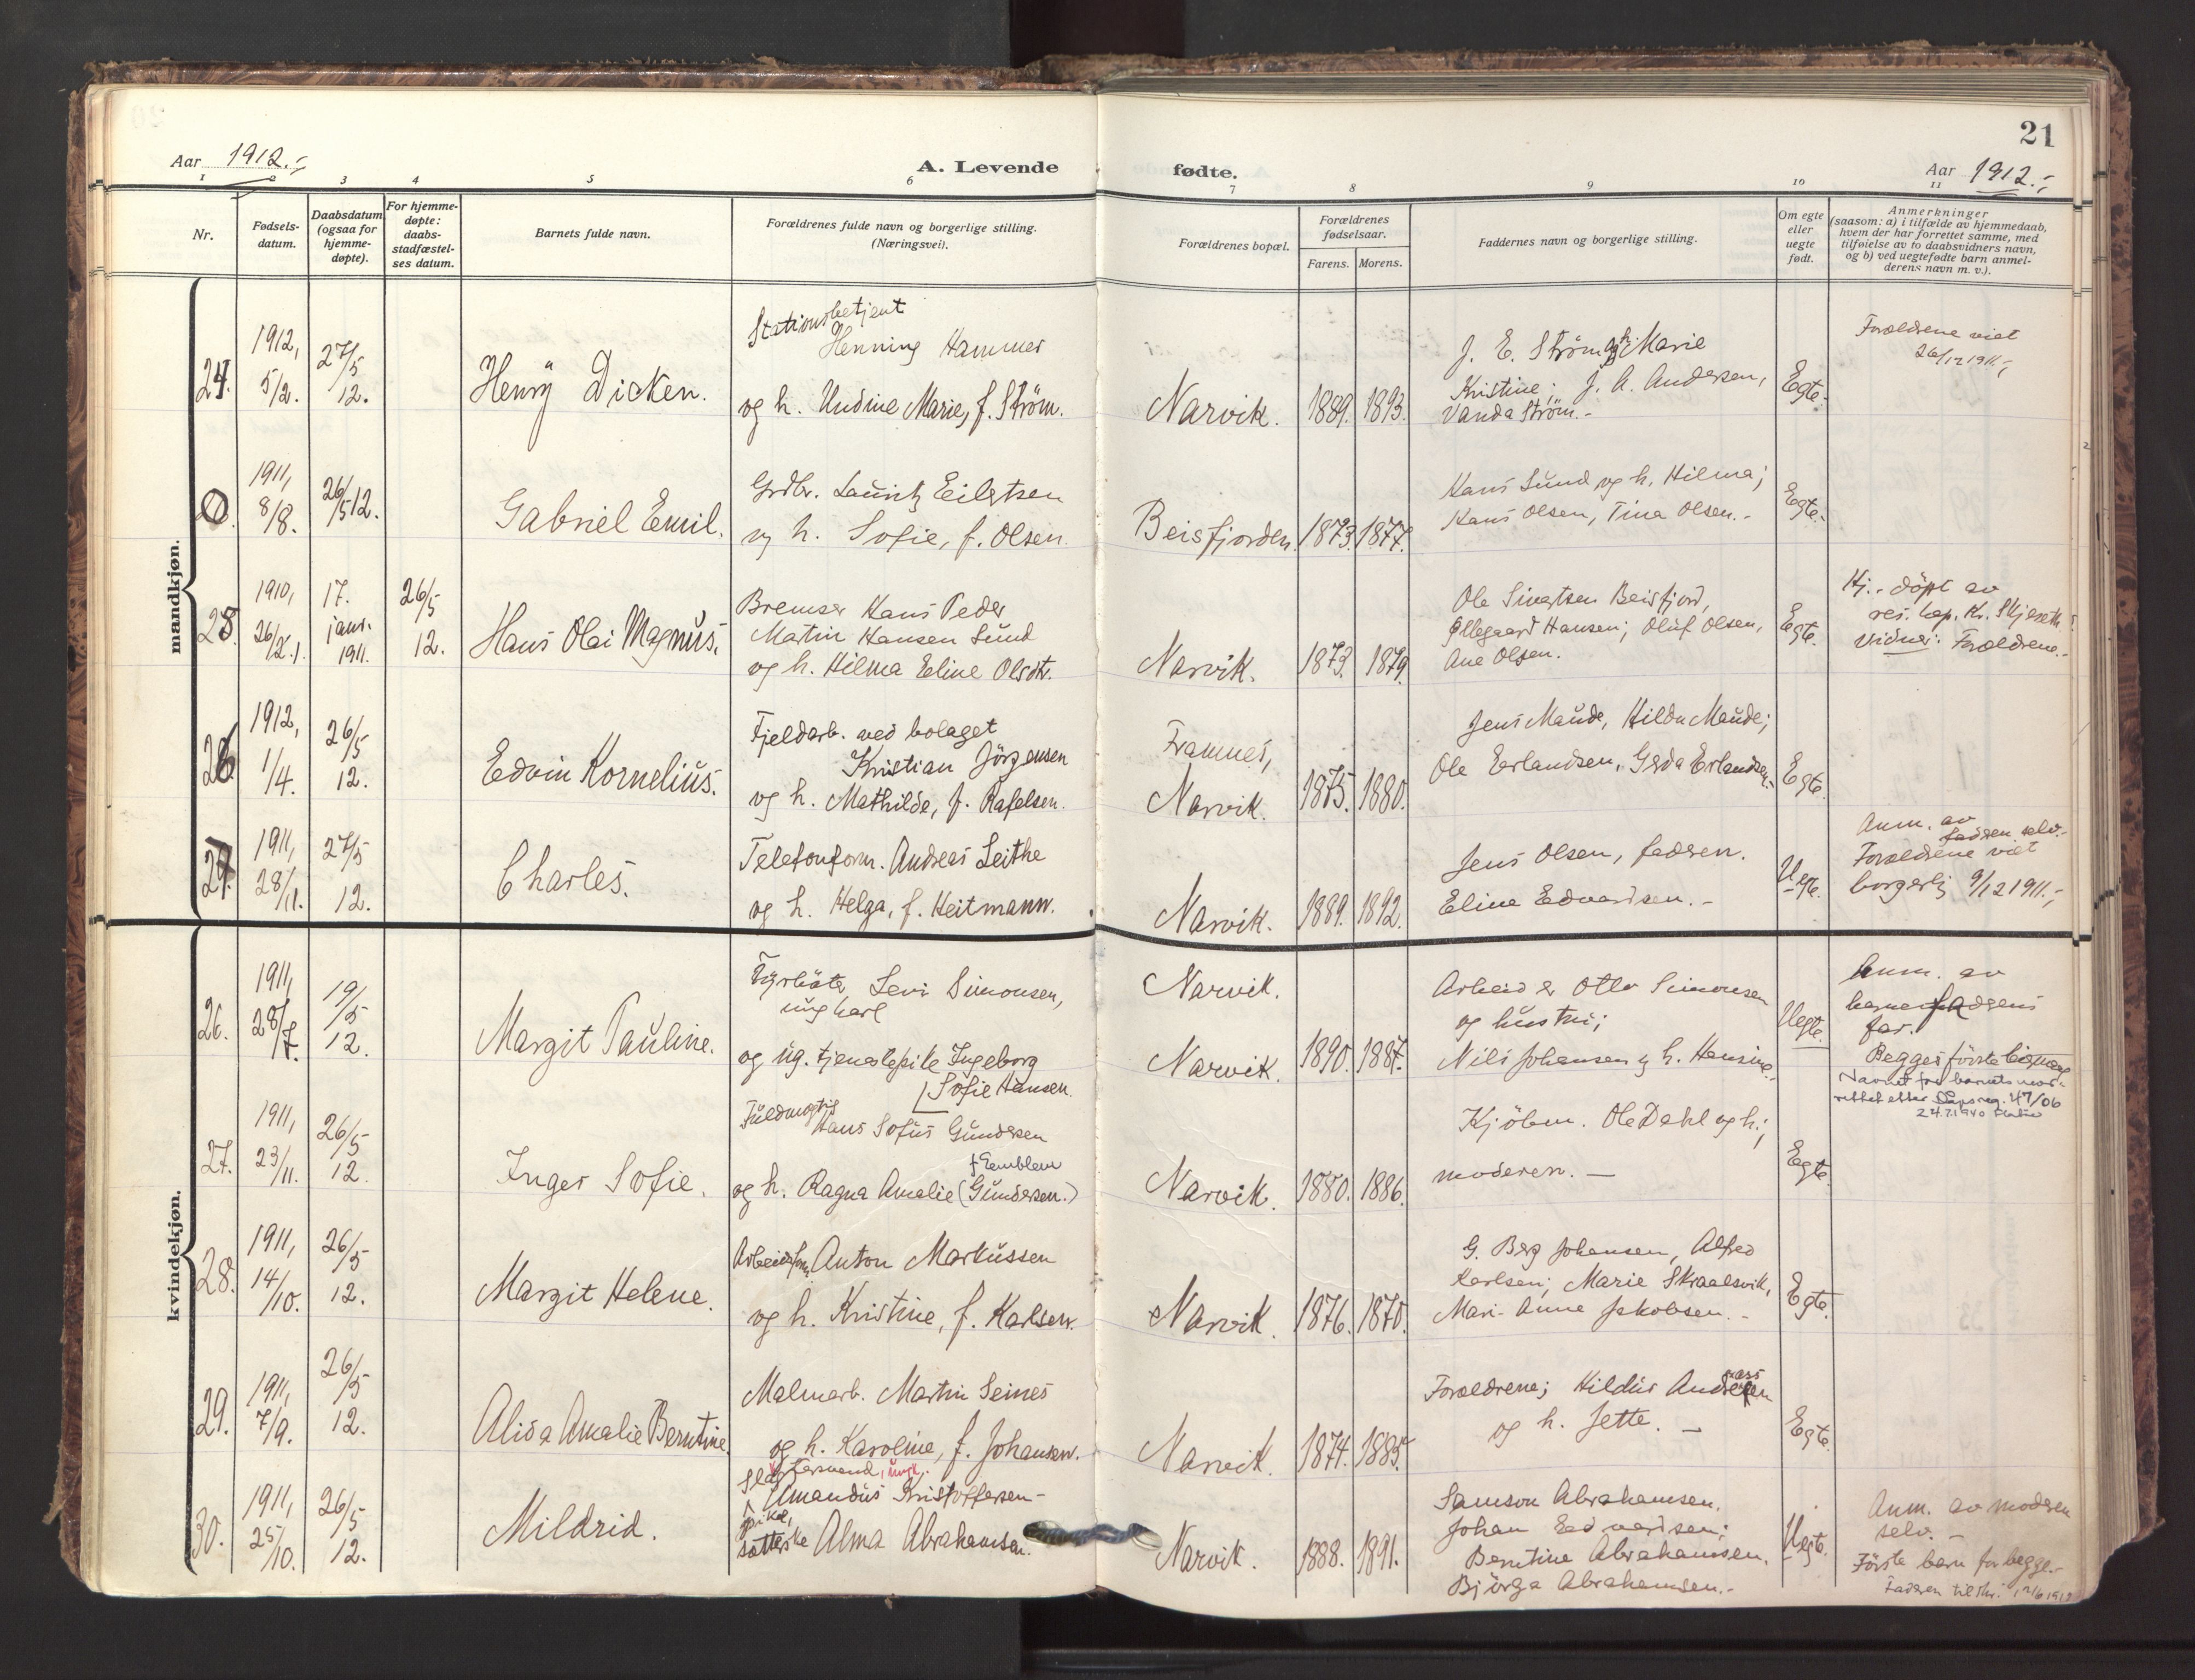 21
Aar 1912.
A. Levende fødte.
Aar 1912.
1 2 3 4 5 6 7 8 9 10 11
Nr.
Fødsels-
datum.
Daabsdatum
(ogsaa for
hjemme-
døpte).
For hjemme-
døpte:
daabs-
stadfæstel-
ses datum.
Barnets fulde navn.
Forældrenes fulde navn og borgerlige stilling.
(Næringsvei).
Forældrenes bopæl.
Forældrenes
fødselsaar.
Farens. Morens.
Faddernes navn og borgerlige stilling.
Om egte
eller
uegte
født.
Anmerkninger
(saasom: a) i tilfælde av hjemmedaab,
hvem der har forrettet samme, med
tilføielse av to daabsvidners navn,
og b) ved uegtefødte barn anmel-
derens navn m. v.).
mandkjøn.
24.
1912,
5/2.
27/5
12.
Henry Dicken.
Stationsbetjent
Henning Hammer
og h. Undine Marie, f. Strøm.
Narvik.
1889. 1893.
J. E. Strøm Marie
Kristine; J. A. Andersen,
Vanda Strøm.-
Egte.
Forældrene viet
26/12 1911.
1911,
8/8.
26/5 12.
Gabriel Emil.
Grdbr. Lauritz Eilertsen
og h. Sofie, f. Olsen.
Beisfjorden.
1873. 1877.
Hans Lund og h. Hilma;
Hans Olsen, Tina Olsen.-
Egte.-
25.
1910,
26/12.
17.
janr.
1911.
26/5
12.
Hans Olai Magnus.
Bremser Hans Peder
Matin Hansen Lund
og h. Hilma Eline Olsdtr.
Narvik.
1873. 1879.
Ole Sivertsen Beisfjord,
Ollegaard Hansen; Oluf Olsen,
Ane Olsen.
Egte.
Hj.- døpt av
res. kap. Kr. Skjeseth.
Vidner: Forældrene.-
26
1912,
1/4.
26/5
12.
Edvin Kornelius.
Fjeldarb. ved bolaget
Kristian Jörgensen
og h. Mathilde, f. Rafelsen.
Framnes,
Narvik.
1875. 1880.
Jens Maude, Hilda Maude;
Ole Erlandsen, Gerda Erlandsen.-
Egte.
27.
1911,
28/11.
27/5
12.
Charles.
Telefonform. Andreas Leithe
og h. Helga, f. Heitmann.
Narvik.
1889. 1892.
Jens Olsen, faderen.
Eline Edvardsen.-
Uegte.
Anm. av
faderen selv.-
Forældrene viet
borgerlig 9/12 1911.
kvindekjøn.
26.
1911,
28/7.
19/5
12.
Margit Pauline.
Fyrbøter Levi Simonsen,
ungkarl
og ug. tjenestepike Ingeborg
Sofie Hansen.
Narvik.
Narvik.
1890. 1887.
Arbeider Otto Simonsen
og hustru;
Nils Johansen og h. Hansine.
Uegte.
Anm. av
faderens
far.
Begges første
Navnet for barnets mor
rettet efter 47/06
24.7.1940
27.
1911,
23/11.
26/5
12.
Inger Sofie.
Fuldmægtig
Hans Sofus Gundersen
f. Emblem
og h. Ragna Amalie (Gundersen.)
Narvik.
1880. 1886.
Kjøbm. Ole Dahl og h.;
moderen. —
Egte.
28.
1911,
14/10.
26/5
12.
Margit Helene.
Arbeidsform. Anton Markussen
og h. Kristine, f. Karlsen.
Narvik.
1876. 1870.
G. Berg Johansen, Alfred
Karlsen; Marie Skraalsvik,
Mari-Anne Jakobsen.-
Egte.
29.
1911,
7/9.
26/5
12.
Alida Amalie Berntine.
Malmarb. Martin Seines
og h. Karoline, f. Johansen.
Narvik.
1874. 1885.
Forældrene; Hildur
og h. Jette. —
Egte.
30.
1911,
25/10.
26/5
12.
Mildrid.
Slagtersvend, ungk.
Amandus Kristoffersen-
pike,
Alma Abrahamsen.
Narvik.
1888. 1891.
Samson Abrahamsen,
Johan Edvardsen;
Berntine Abrahamsen,
Bjørga Abrahamsen.-
Uegte.
Anm. av moderen
selv. —
Første barn for begge.-
Faderen tilskr. 12/6 1912